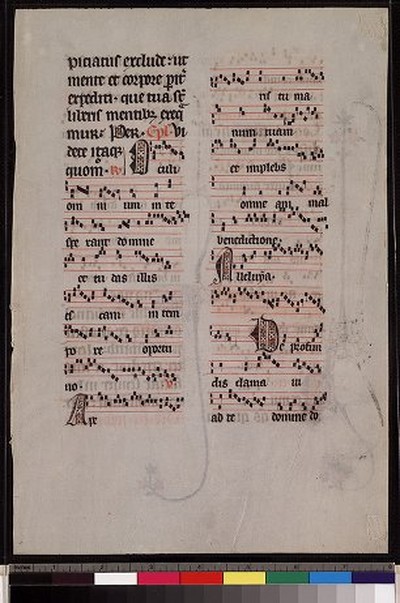 piciatus exclude: ut
mente et corpore pit
expediti. que tua st
liberis mentibus exeq
mur. Per. Epl. Vi
dete itaq
quom. R. Ocu li
om ni um in te
spe rant domine
et tu das illis
es cam in tem
po re oportu
no. V.
Ape
ris tu ma
num tuam
et imples
omne ani mal
benedictione.
Alleluya.
De profun
dis clama ui
ad te domine do